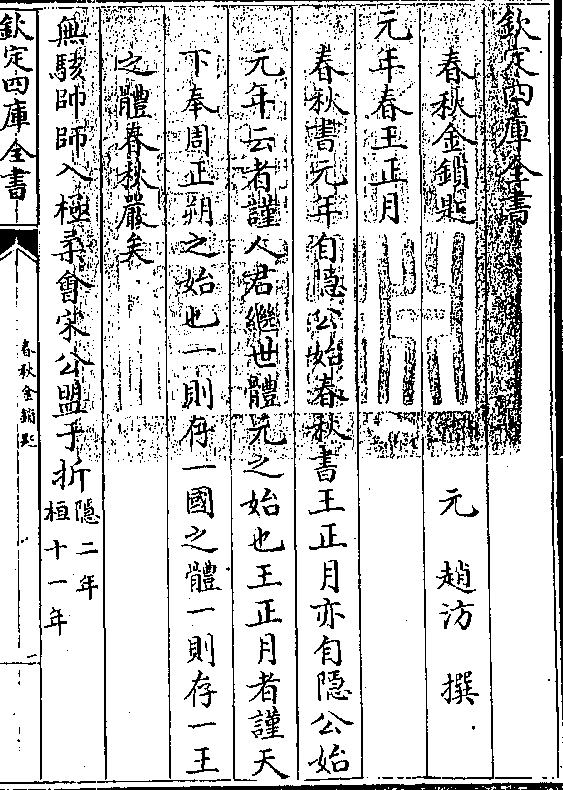 欽定四庫全書
春秋金鎖匙
元 趙汸 撰
元年春王正月
春秋書元年自隱公始春秋書王正月亦自隱公始
元年云者謹人君繼世體元之始也王正月者謹天
下奉周正朔之始也一則存一國之體一則存一王
之體春秋嚴矣
無駭帥師入極柔會宋公盟于折隱二年
桓十一年
欽定四庫全書
春秋金鎖匙
一